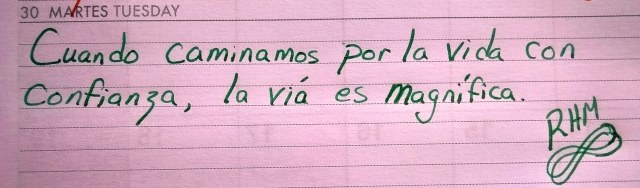 30 MARTES TUESDAY
Cuando caminamos por la vida con
Confianza, la viá es magnífica.
RHM